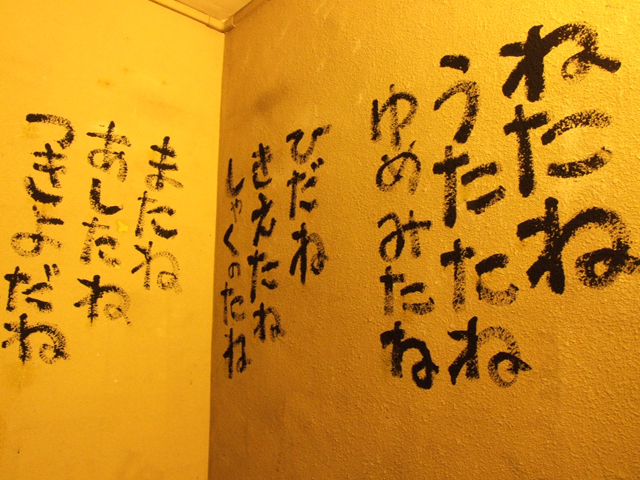 ねたね
うたたね
ゆめみたね
ひだね
きえたね
しゃくのたね
またね
あしたね